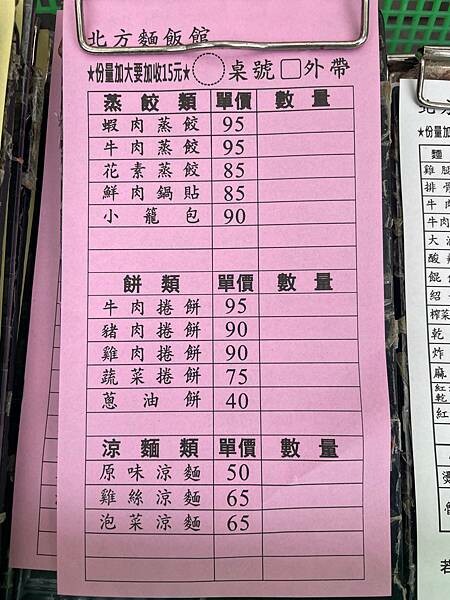 北方麵飯館
★份量加大要加收15元★ 桌號 外帶
蒸餃類 單價 數量
蝦肉蒸餃 95
牛肉蒸餃 95
花素蒸餃 85
鮮肉鍋貼 85
小籠包 90
餅類 單價 數量
牛肉捲餅 95
豬肉捲餅 90
雞肉捲餅 90
蔬菜捲餅 75
蔥油餅 40
涼麵類 單價 數量
原味涼麵 50
雞絲涼麵 65
泡菜涼麵 65
★份量加
麵
雞腿
排骨
牛肉
牛肉
大滷
酸辣
餛
紹
榨菜
乾
炸
麻
紅
乾
若